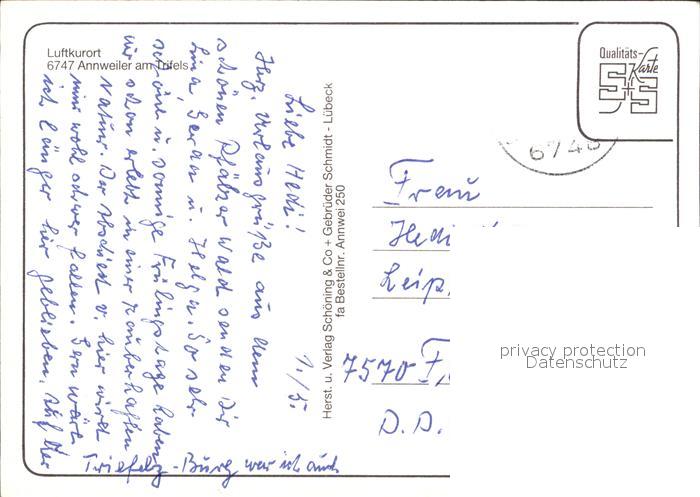 Luftkurort
6747 Annweiler am Trifels
Qualitäts-
Karte
S+S
6748
Herst. u. Verlag Schöning & Co + Gebrüder Schmidt - Lübeck
fa Bestellnr. Annwei 250
1./5.
Liebe Hedi!
Herz. Urlaubsgrüße aus dem
schönen Pfälzer Wald senden Dir
Lina, Gerda u. Helga. So sehr
schöne u. sonnige Frühlingstage haben
wir schon erlebt in einer zauberhaften
Natur. Der Abschied v. hier wird
mir wohl schwer fallen. Gern wäre
ich länger hier geblieben. Auf der
Triefels-Burg war ich auch
Frau
Hedi
Leip.
7570
D.D.
privacy protection
Datenschutz